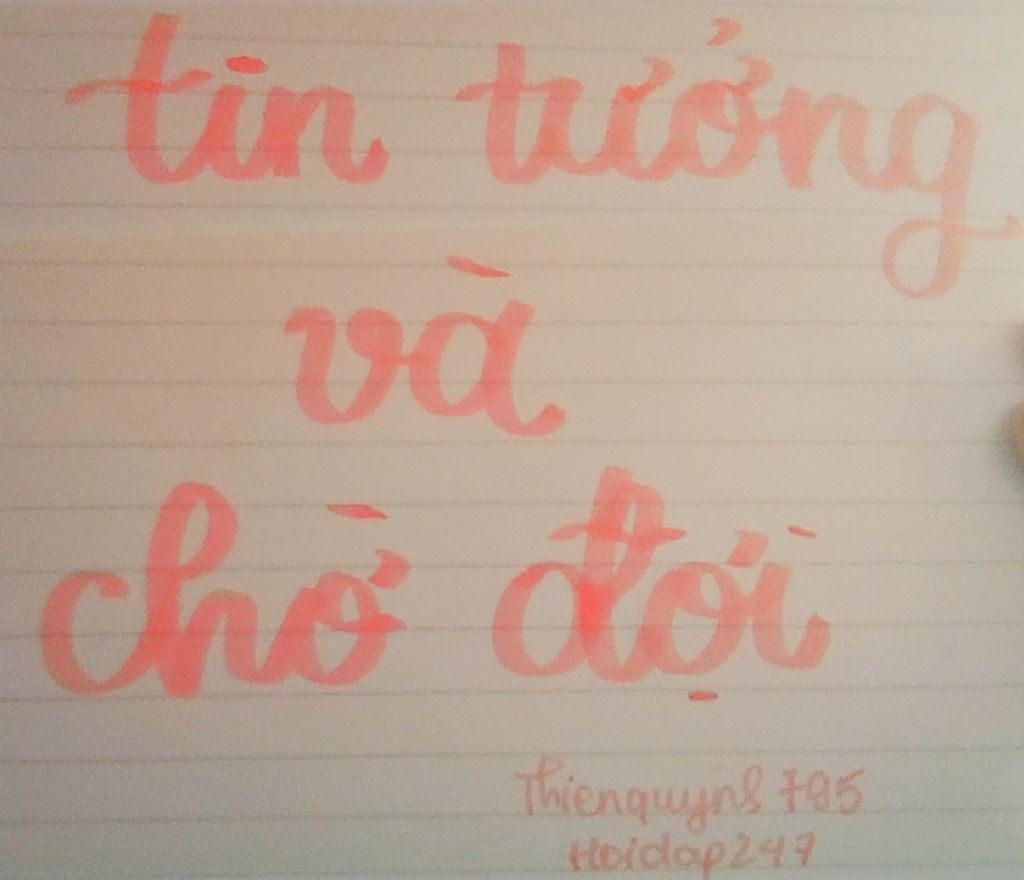 tin tưởng
và
chờ đợi
Thienquynh 785
Hoidap247